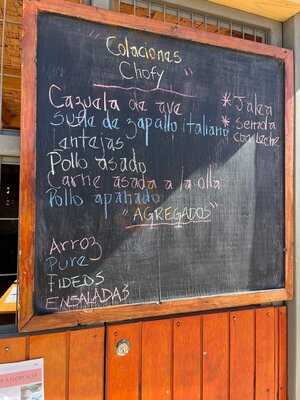 "Colaciones
Chofy"
Cazuela de ave
Sufle de zapallo italiano
Lentejas
Pollo asado
Carne asada a la olla
Pollo apanado
* Jalea
* Semola
con leche
"AGREGADOS"
Arroz
Pure
FIDEOS
ENSALADAS